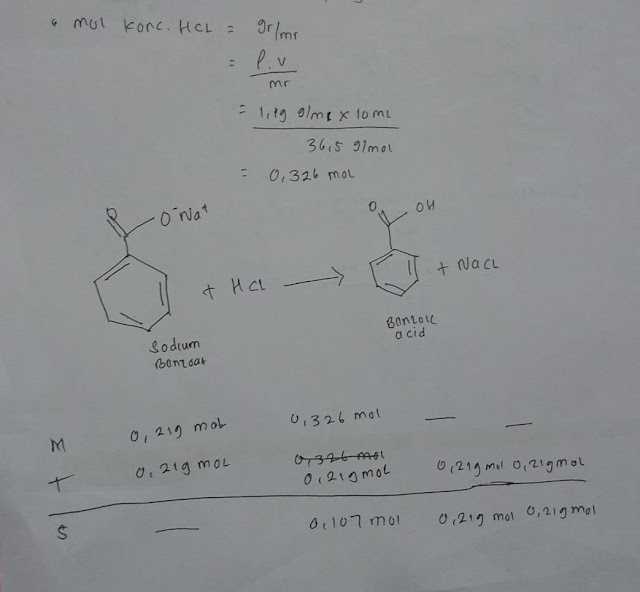 mol konc. HCl = gr/mr
= ρ.v / mr
= 1,19 g/ml x 10 mL / 36,5 g/mol
= 0,326 mol
O O⁻Na⁺ + HCl → O OH + NaCl
Sodium Benzoat
Benzoic acid
M 0,219 mol 0,326 mol — —
T 0,219 mol 0,326 mol 0,219 mol 0,219 mol 0,219 mol
S — 0,107 mol 0,219 mol 0,219 mol